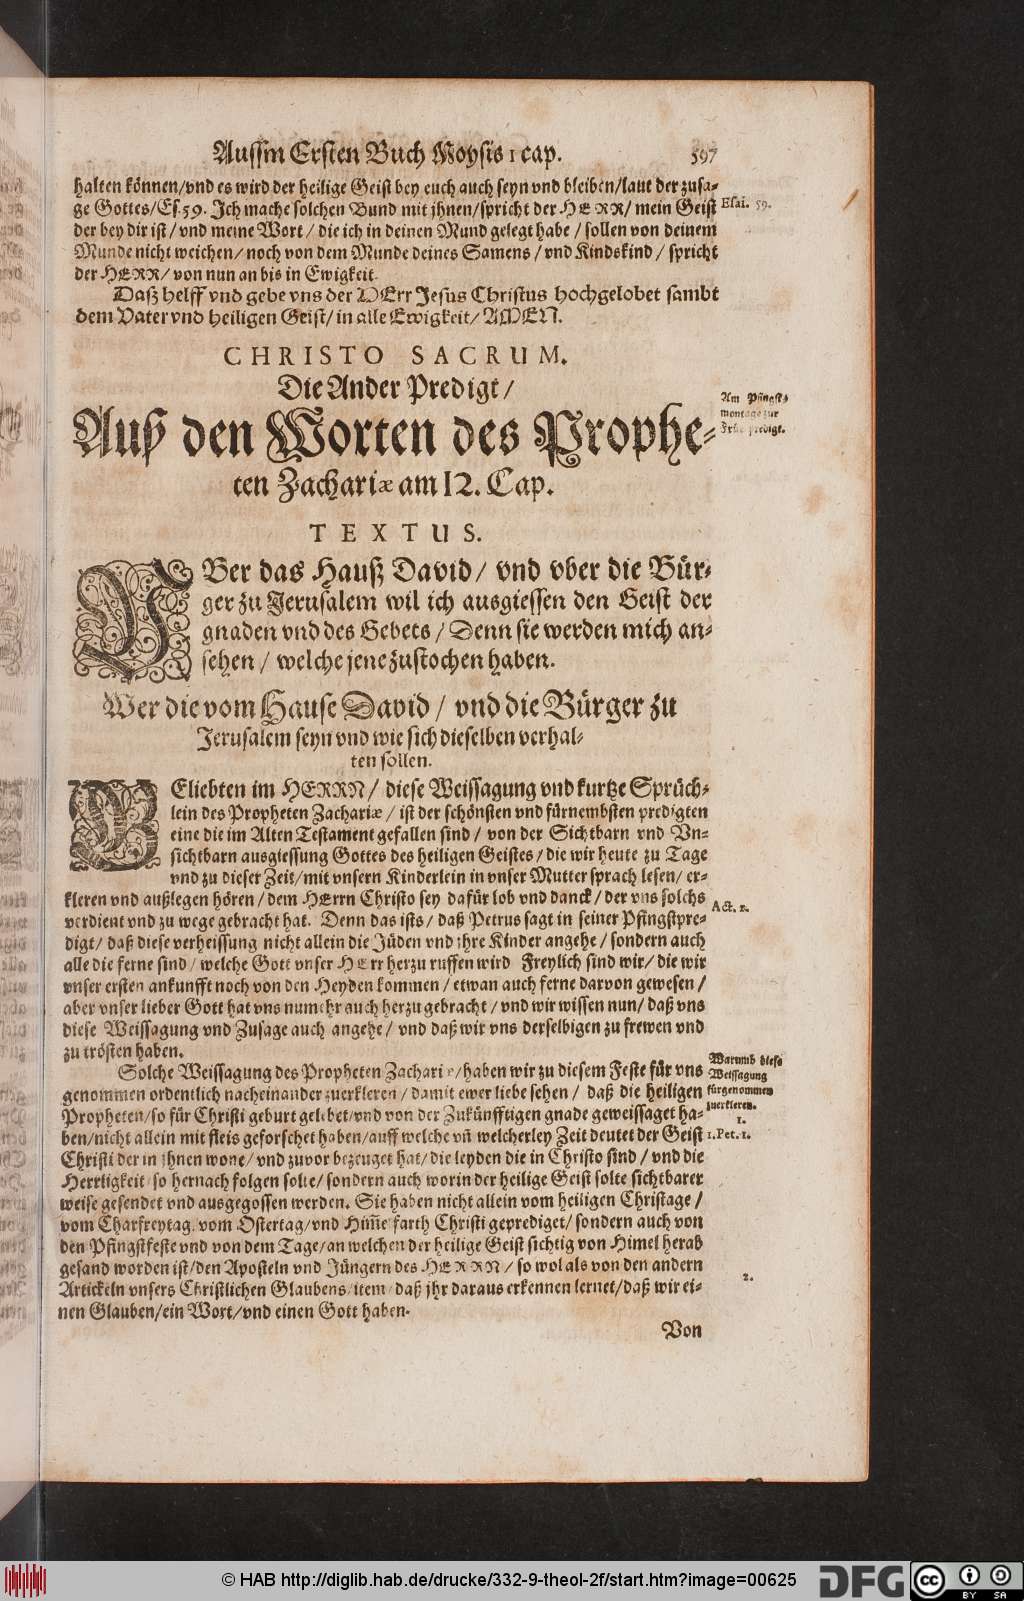 Aussm Ersten Buch Moysis 1 cap. 597
halten können/vnd es wird der heilige Geist bey euch auch seyn vnd bleiben/laut der zusa-
ge Gottes/Es. 59. Ich mache solchen Bund mit jhnen/spricht der HERR/ mein Geist
Esai. 59.
der bey dir ist/ vnd meine Wort/ die ich in deinen Mund gelegt habe/ sollen von deinem
Munde nicht weichen/ noch von dem Munde deines Samens/ vnd Kindskind/ spricht
der HERR/ von nun an bis in Ewigkeit.
Daß helff vnd gebe vns der HErr Jesus Christus hochgelobet sambt
dem Vater vnd heiligen Geist/ in alle Ewigkeit/ AMEN.
CHRISTO SACRUM.
Die Ander Predigt/
Am Pfingst-
montage zur
Früe predigt.
Auß den Worten des Prophe-
ten Zachariæ am 12. Cap.
TEXTUS.
VBer das Hauß David/ vnd vber die Bür-
ger zu Jerusalem wil ich ausgiessen den Geist der
gnaden vnd des Gebets/ Denn sie werden mich an-
sehen/ welche jene zustochen haben.
Wer die vom Hause David/ vnd die Bürger zu
Jerusalem seyn vnd wie sich dieselben verhal-
ten sollen.
GEliebten im HERRN/ diese Weissagung vnd kurtze Sprüch-
lein des Propheten Zachariæ/ ist der schönsten vnd fürnembsten predigten
eine die im Alten Testament gefallen sind/ von der Sichtbarn vnd Vn-
sichtbarn ausgiessung Gottes des heiligen Geistes/ die wir heute zu Tage
vnd zu dieser Zeit/ mit vnsern Kinderlein in vnser Mutter sprach lesen/ er-
kleren vnd außlegen hören/ dem HErrn Christo sey dafür lob vnd danck/ der vns solchs
Act. 2.
verdient vnd zu wege gebracht hat. Denn das ists/ daß Petrus sagt in seiner Pfingstpre-
digt/ daß diese verheissung nicht allein die Jüden vnd jhre Kinder angehe/ sondern auch
alle die ferne sind/ welche Gott vnser HErr herzu ruffen wird Freylich sind wir/ die wir
vnser ersten ankunfft noch von den Heyden kommen/ etwan auch ferne darvon gewesen/
aber vnser lieber Gott hat vns numehr auch herzu gebracht/ vnd wir wissen nun/ daß vns
diese Weissagung vnd Zusage auch angehe/ vnd daß wir vns derselbigen zu frewen vnd
zu trösten haben.
Solche Weissagung des Propheten Zachariæ/ haben wir zu diesem Feste für vns
genommen ordentlich nacheinander zuerkleren/ damit ewer liebe sehen/ daß die heiligen
Propheten/ so für Christi geburt gelebet/ vnd von der Zukünfftigen gnade geweissaget ha-
Warumb diese
Weissagung
fürgenommen
zuerkleren.
1.
ben/ nicht allein mit fleis geforschet haben/ auff welche vn̄ welcherley Zeit deutet der Geist
1. Pet. 1.
Christi der in jhnen wone/ vnd zuvor bezeuget hat/ die leyden die in Christo sind/ vnd die
Herrligkeit so hernach folgen solte/ sondern auch worin der heilige Geist solte sichtbarer
weise gesendet vnd ausgegossen werden. Sie haben nicht allein vom heiligen Christage/
vom Charfreytag, vom Ostertag/ vnd Him̄elfarth Christi geprediget/ sondern auch von
den Pfingstfeste vnd von dem Tage/ an welchen der heilige Geist sichtig von Himel herab
gesand worden ist/ den Aposteln vnd Jüngern des HERRN/ so wol als von den andern
Artickeln vnsers Christlichen Glaubens/ item/ daß jhr daraus erkennen lernet/ daß wir ei-
2.
nen Glauben/ ein Wort/ vnd einen Gott haben.
Von
© HAB http://diglib.hab.de/drucke/332-9-theol-2f/start.htm?image=00625
DFG
cc
BY SA